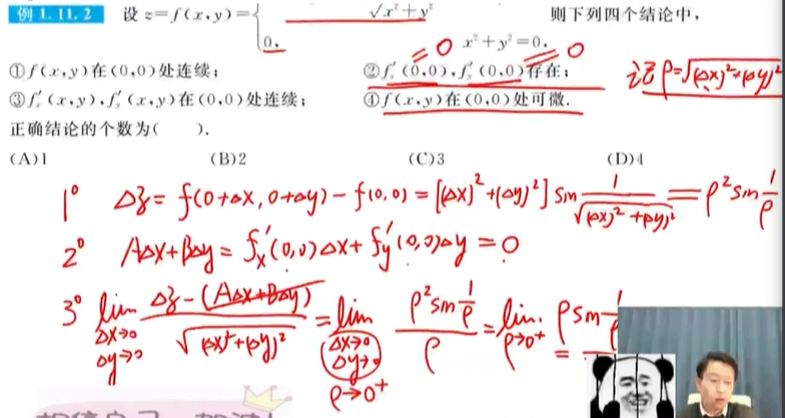 例 1.11.2 设 z=f(x,y)={ √x²+y² 则下列四个结论中,
0, x²+y²=0,
=0 =0
①f(x,y)在(0,0)处连续; ②f'ₓ(0,0),f'ᵧ(0,0)存在; 记 ρ=√(Δx)²+(Δy)²
③f'ₓ(x,y),f'ᵧ(x,y)在(0,0)处连续; ④f(x,y)在(0,0)处可微.
正确结论的个数为( ).
(A)1 (B)2 (C)3 (D)4
1° Δz=f(0+Δx,0+Δy)-f(0,0)=[(Δx)²+(Δy)²]sin 1/√(Δx)²+(Δy)² = ρ² sin 1/ρ
2° AΔx+BΔy=f'ₓ(0,0)Δx+f'ᵧ(0,0)Δy=0
3° lim Δx→0 Δy→0 Δz-(AΔx+BΔy)/√(Δx)²+(Δy)² = lim Δx→0 Δy→0 ρ→0⁺ ρ² sin 1/ρ / ρ = lim ρ→0⁺ ρ sin 1/ρ =